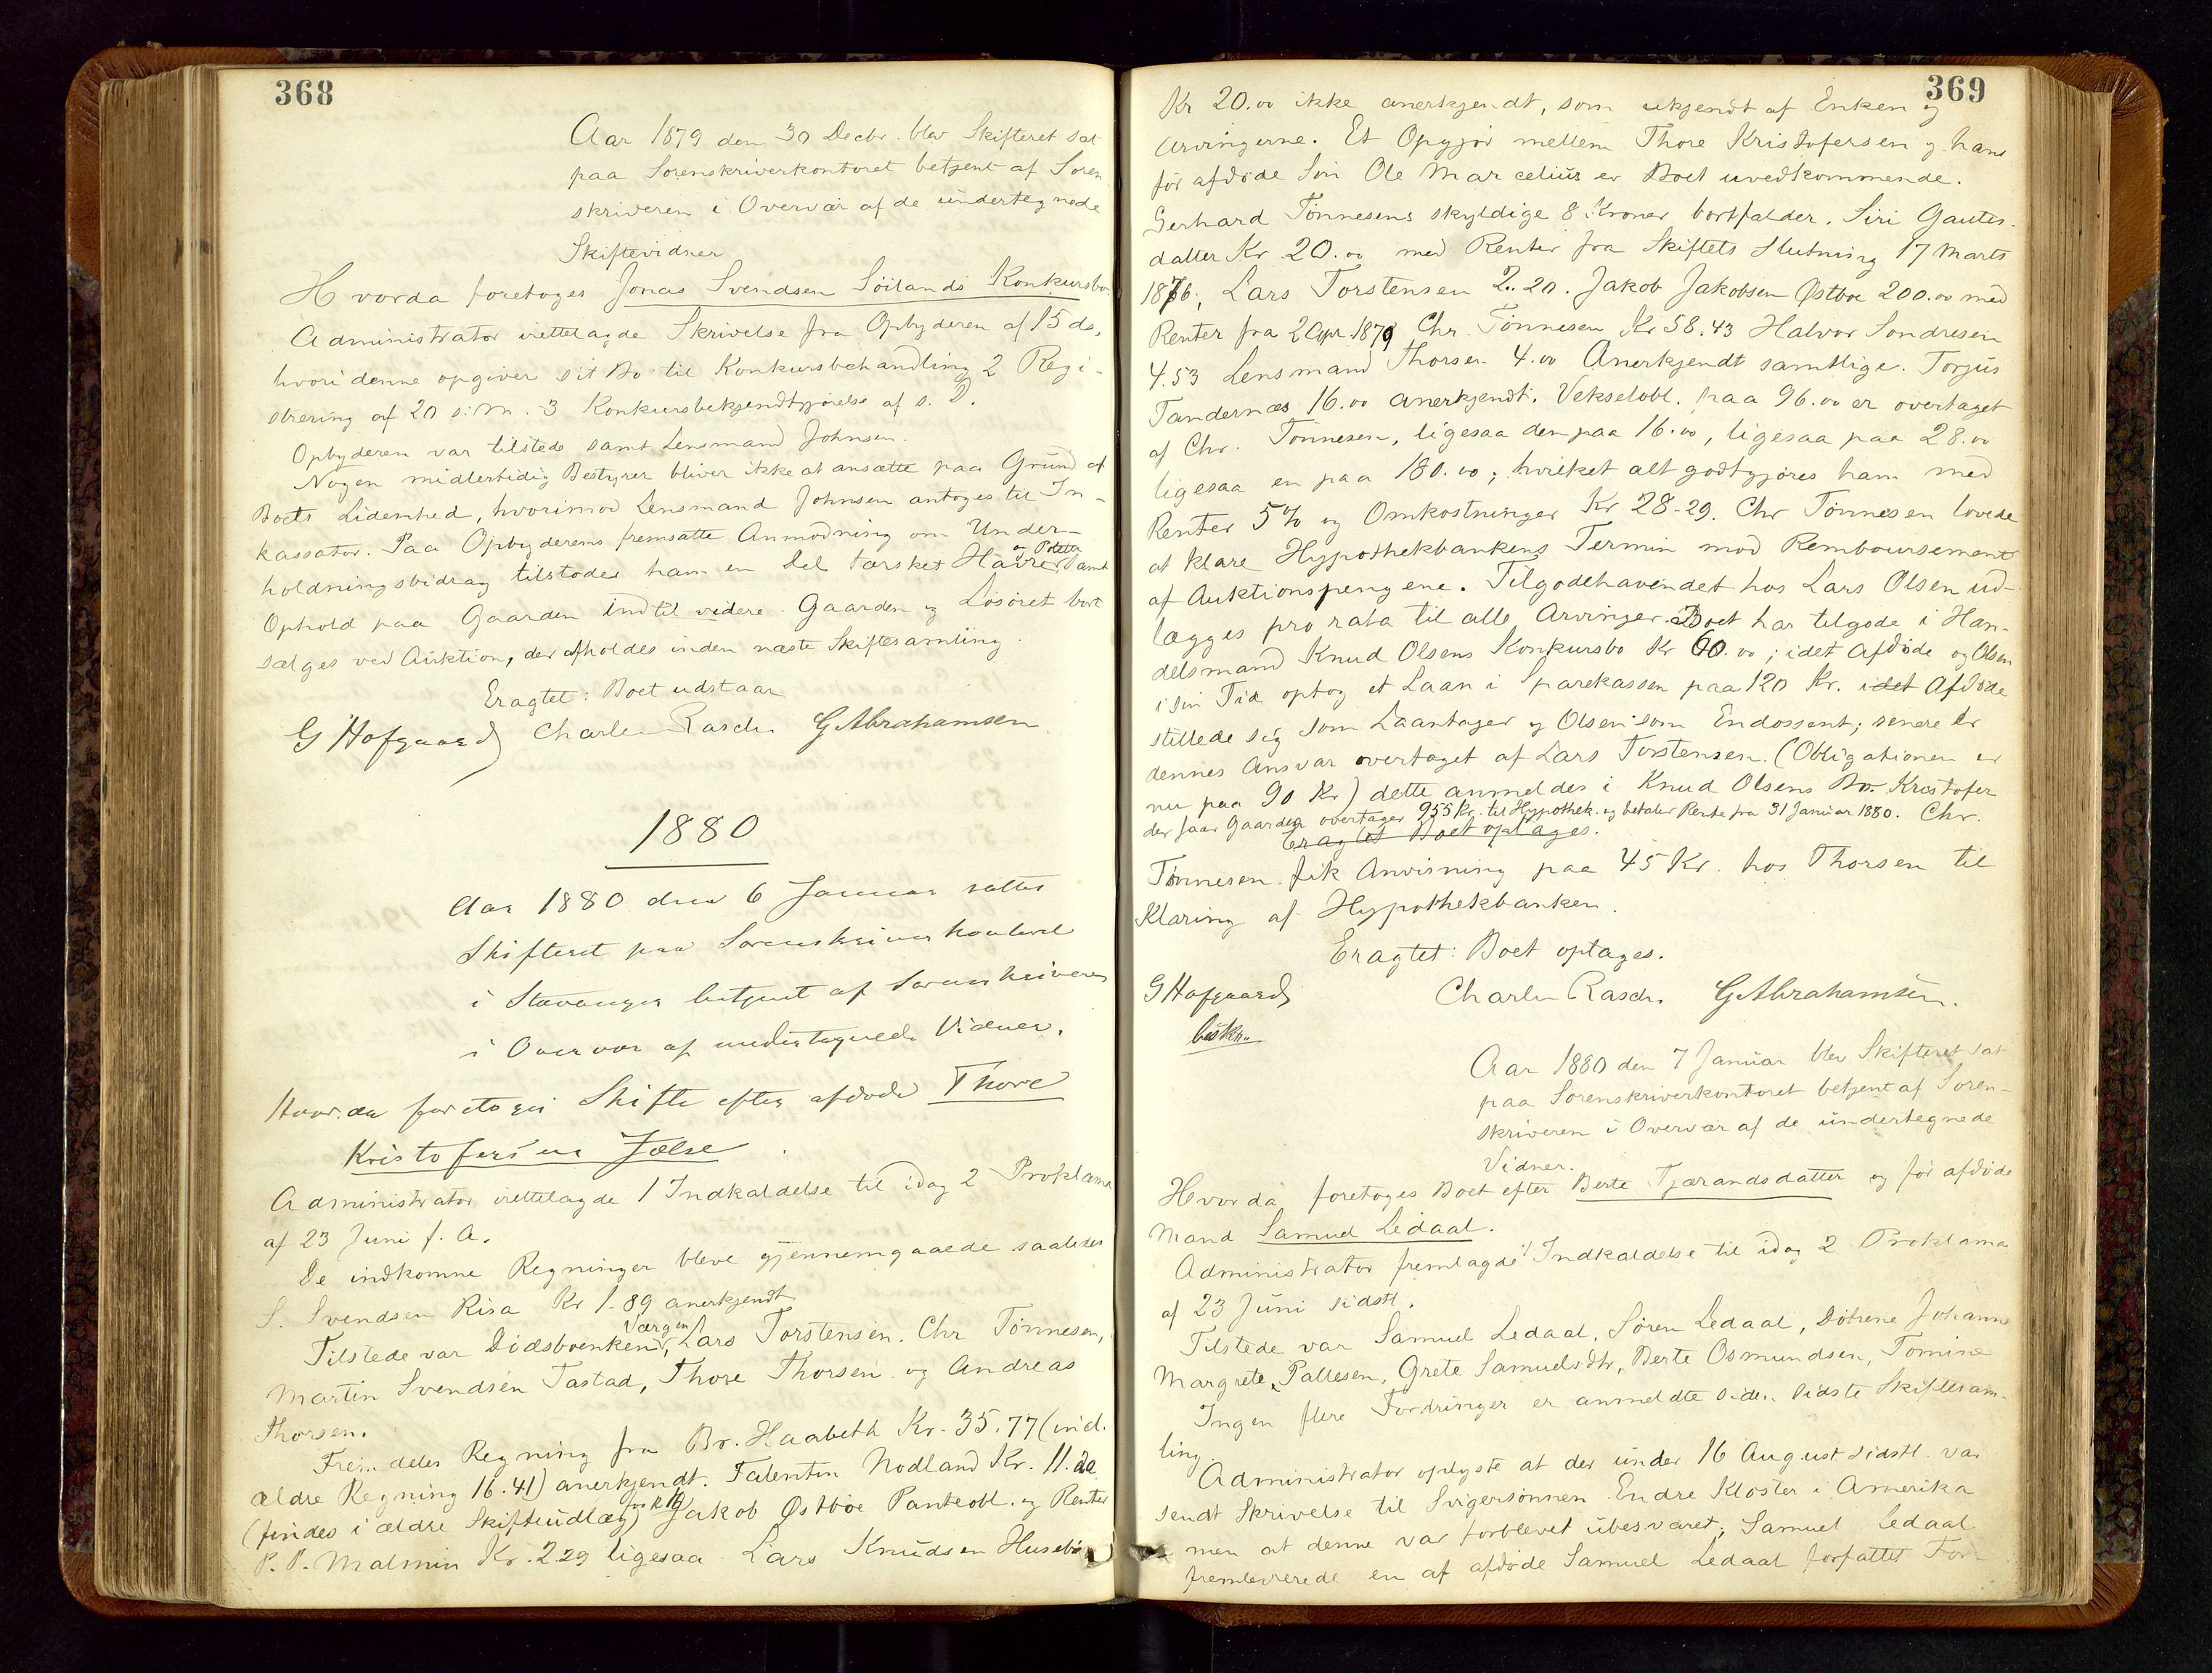 368
Aar 1879 den 30 Decbr. blev Skifteret sat
paa Sorenskriverkontoret betjent af Soren
skriveren i Overvær af de undertegnede
Skiftevidner
Hvorda foretoges Jonas Svendsen Söilands Konkursbo
Administrator irettelagde Skrivelse fra Opbyderen af 15 ds.
hvori denne opgiver sit Bo til Konkursbehandling 2 Regi-
strering af 20 s: M. 3 Konkursbekjendtgjørelse af s. D.
Opbyderen var tilstede samt Lensmand Johnsen.
Nogen midlertidig Bestyrer bliver ikke at ansætte paa Grund af
Boets Lidenhed, hvorimod Lensmand Johnsen antoges til In-
kassator. Paa Opbyderens fremsatte Anmodning om Under-
holdningsbidrag tilstodes ham en Del tærsket Havre og Poteter samt
Ophold paa Gaarden indtil videre. Gaarden og Løsøret bort
sælges ved Auktion, der afholdes inden næste Skiftesamling.
Eragtet: Boet udstaar
G Hofgaard Charles Rasch. G Abrahamsen
1880
Aar 1880 den 6 Januar sattes
Skifteret paa Sorenskriverkontoret
i Stavanger betjent af Sorenskriveren
i Overvær af undertegnede Vidner.
Hvor da foretoges Skifte efter afdøde Thore
Kristofersen Jælse
Administrator irettelagde 1 Indkaldelse til idag 2 Proklama
af 23 Juni f. A.
De indkomne Regninger bleve gjennemgaaede saaledes
S. Svendsen Risa Kr 1.89 anerkjendt.
Tilstede var Dødsboenkens Værgen, Lars Torstensen. Chr Tönnesen,
Martin Svendsen Tastad, Thore Thorsen og Andreas
Thorsen.
Fremdeles Regning fra Br. Haabeth Kr. 35.77 (incl.
ældre Regning 16.41) anerkjendt. Falentin Nodland Kr. 11.20
(findes i ældre Skifteudlæg) Jakob Østböe Panteobl. og Renter
P. P. Malmin Kr. 2.29 ligesaa. Lars Knudsen Husebø
369
Kr 20.00 ikke anerkjendt, som ukjendt af Enken og
Arvingerne. Et Opgjör mellem Thore Kristofersen og hans
för afdöde Sön Ole Marcelius er Boet uvedkommende.
Gerhard Tönnesens skyldige 8 Kroner bortfalder. Siri Gautes-
datter Kr 20.00 med Renter fra Skiftets Slutning 17 Marts
1876, Lars Torstensen 2.20. Jakob Jakobsen Østbø 200.00 med
Renter fra 2 Apr. 1879 Chr. Tönnesen Kr 58.43 Halvor Sondresen
4.53 Lensmand Thorsen 4.00 Anerkjendt samtlige. Torjus
Tandernæs 16.00 anerkjendt. Vekselobl. paa 96.00 er overtaget
af Chr. Tönnesen, ligesaa den paa 16.00, ligesaa paa 28.00
ligesaa en paa 180.00; hvilket alt godtgjøres ham med
Renter 5% og Omkostninger Kr 28.29. Chr Tönnesen lovede
at klare Hypothekbankens Termin mod Remboursement
af Auktionspengene. Tilgodehavendet hos Lars Olsen ud-
lægges pro rata til alle Arvinger. Boet har tilgode i Han-
delsmand Knud Olsens Konkursbo Kr 60.00; idet Afdöde og Olsen
i sin Tid optog et Laan i Sparekassen paa 120 Kr. idet Afdöde
stillede sig som Laantager og Olsen som Endossent; senere er
dennes Ansvar overtaget af Lars Torstensen. (Obligationen er
nu paa 90 Kr) dette anmeldes i Knud Olsens Bo. Kristofer
der faar Gaarden overtager 955 Kr. til Hypothek. og betaler Rente fra 31 Januar 1880. Chr.
Eragtet Boet optages.
Tönnesen fik Anvisning paa 45 Kr. hos Thorsen til
Klaring af Hypothekbanken.
Eragtet: Boet optages.
G Hofgaard Charles Rasch. G Abrahamsen.
Aar 1880 den 7 Januar blev Skifteret sat
paa Sorenskriverkontoret betjent af Soren-
skriveren i Overvær af de undertegnede
Vidner.
Hvorda foretoges Boet efter Berte Tjærandsdatter og för afdöde
Mand Samuel Ledaal.
Administrator fremlagde 1 Indkaldelse til idag 2 Proklama
af 23 Juni sidstl.
Tilstede var Samuel Ledaal, Søren Ledaal, Døtrene Johanne
Margrete Pallesen, Grete Samuelsdtr, Berte Osmundsen, Tomine
Ingen flere Fordringer er anmeldte siden sidste Skiftesam-
ling
Administrator oplyste at der under 16 August sidstl. var
sendt Skrivelse til Svigersønnen Endre Kloster i Amerika
men at denne var forblevet ubesvaret; Samuel Ledaal
fremleverede en af afdöde Samuel Ledaal forfattet For-